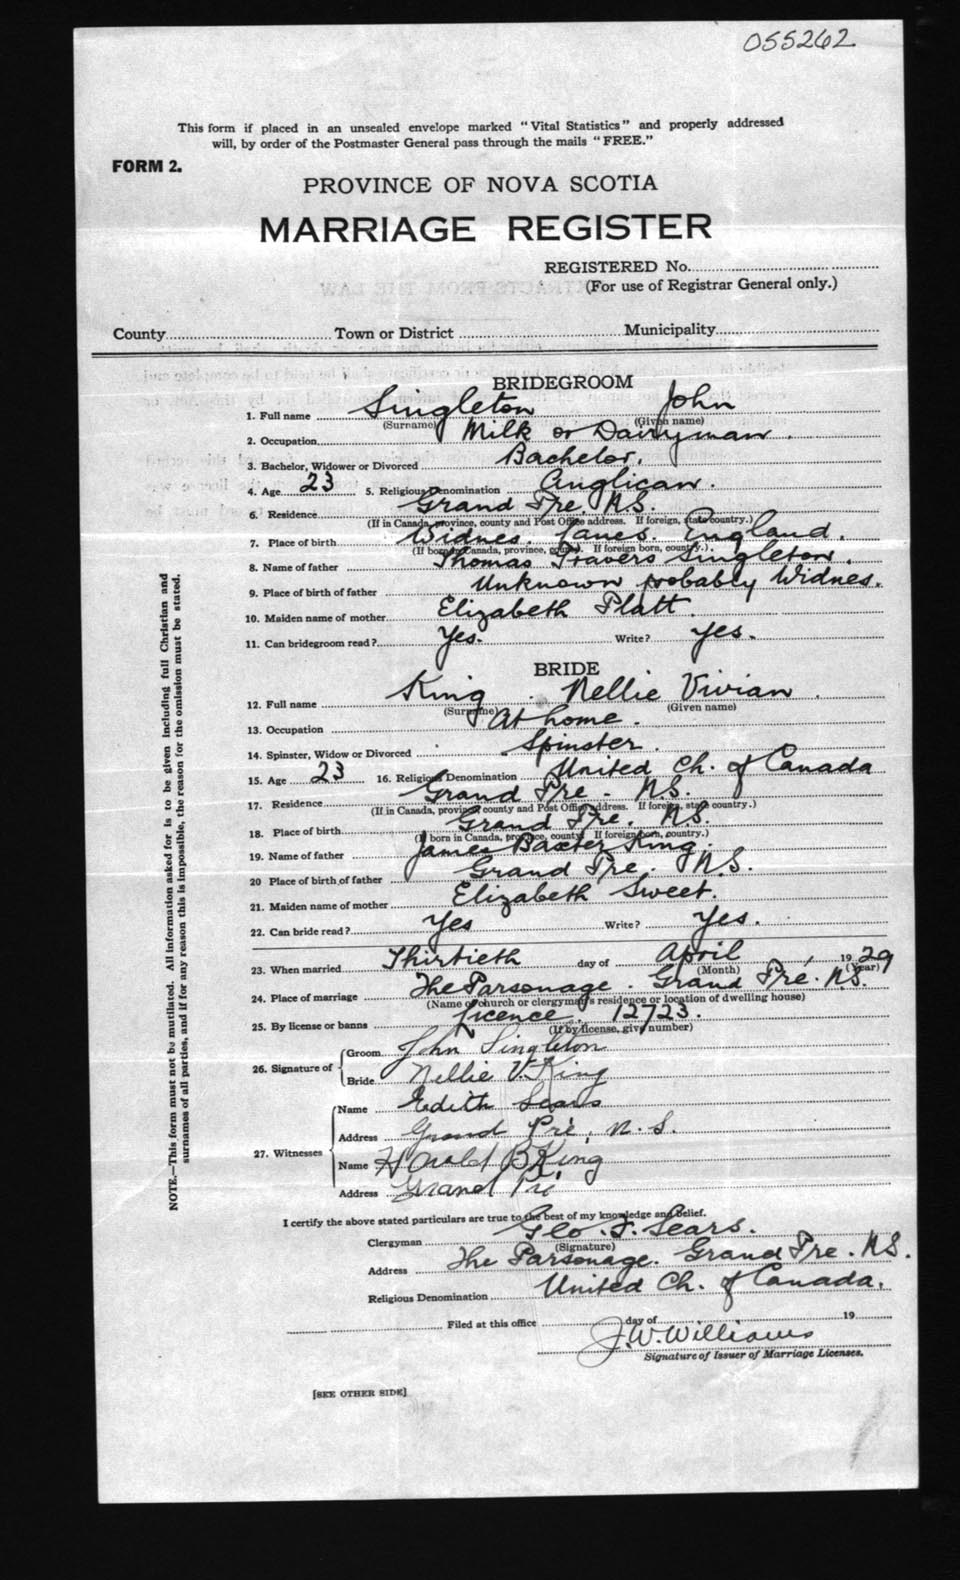 055262
This form if placed in an unsealed envelope marked "Vital Statistics" and properly addressed
will, by order of the Postmaster General pass through the mails "FREE."
FORM 2.
PROVINCE OF NOVA SCOTIA
MARRIAGE REGISTER
REGISTERED No.
(For use of Registrar General only.)
County Town or District Municipality
BRIDEGROOM
1. Full name Singleton John
(Surname) (Given name)
2. Occupation Milk or Dairyman.
3. Bachelor, Widower or Divorced Bachelor.
4. Age 23 5. Religious Denomination Anglican.
6. Residence Grand Pre. N.S.
(If in Canada, province, county and Post Office address. If foreign, state country.)
7. Place of birth Widnes. Lancs. England.
(If born in Canada, province, county. If foreign born, country.)
8. Name of father Thomas Travers Singleton.
9. Place of birth of father Unknown probably Widnes.
10. Maiden name of mother Elizabeth Platt.
11. Can bridegroom read? Yes. Write? Yes.
BRIDE
12. Full name King. Nellie Vivian.
(Surname) (Given name)
13. Occupation At home.
14. Spinster, Widow or Divorced Spinster.
15. Age 23 16. Religious Denomination United Ch. of Canada
17. Residence Grand Pre. N.S.
(If in Canada, province, county and Post Office address. If foreign, state country.)
18. Place of birth Grand Pre. N.S.
(If born in Canada, province, county. If foreign born, country.)
19. Name of father James Baxter King.
20 Place of birth of father Grand Pre. N.S.
21. Maiden name of mother Elizabeth Sweet.
22. Can bride read? Yes Write? Yes.
23. When married Thirtieth day of April 1929
(Month) (Year)
24. Place of marriage The Parsonage. Grand Pré. N.S.
(Name of church or clergyman's residence or location of dwelling house)
25. By license or banns Licence. 12723.
(If by license, give number)
26. Signature of Groom John Singleton
Bride Nellie V. King
27. Witnesses Name Edith Sears
Address Grand Pré, N.S.
Name Harold B King
Address Grand Pré
I certify the above stated particulars are true to the best of my knowledge and belief.
Clergyman Geo. F. Sears.
(Signature)
Address The Parsonage. Grand Pre. N.S.
Religious Denomination United Ch. of Canada.
Filed at this office day of 19
J.W. Williams
Signature of Issuer of Marriage Licenses.
[SEE OTHER SIDE]
NOTE.—This form must not be mutilated. All information asked for is to be given including full Christian and
surnames of all parties, and if for any reason this is impossible, the reason for the omission must be stated.